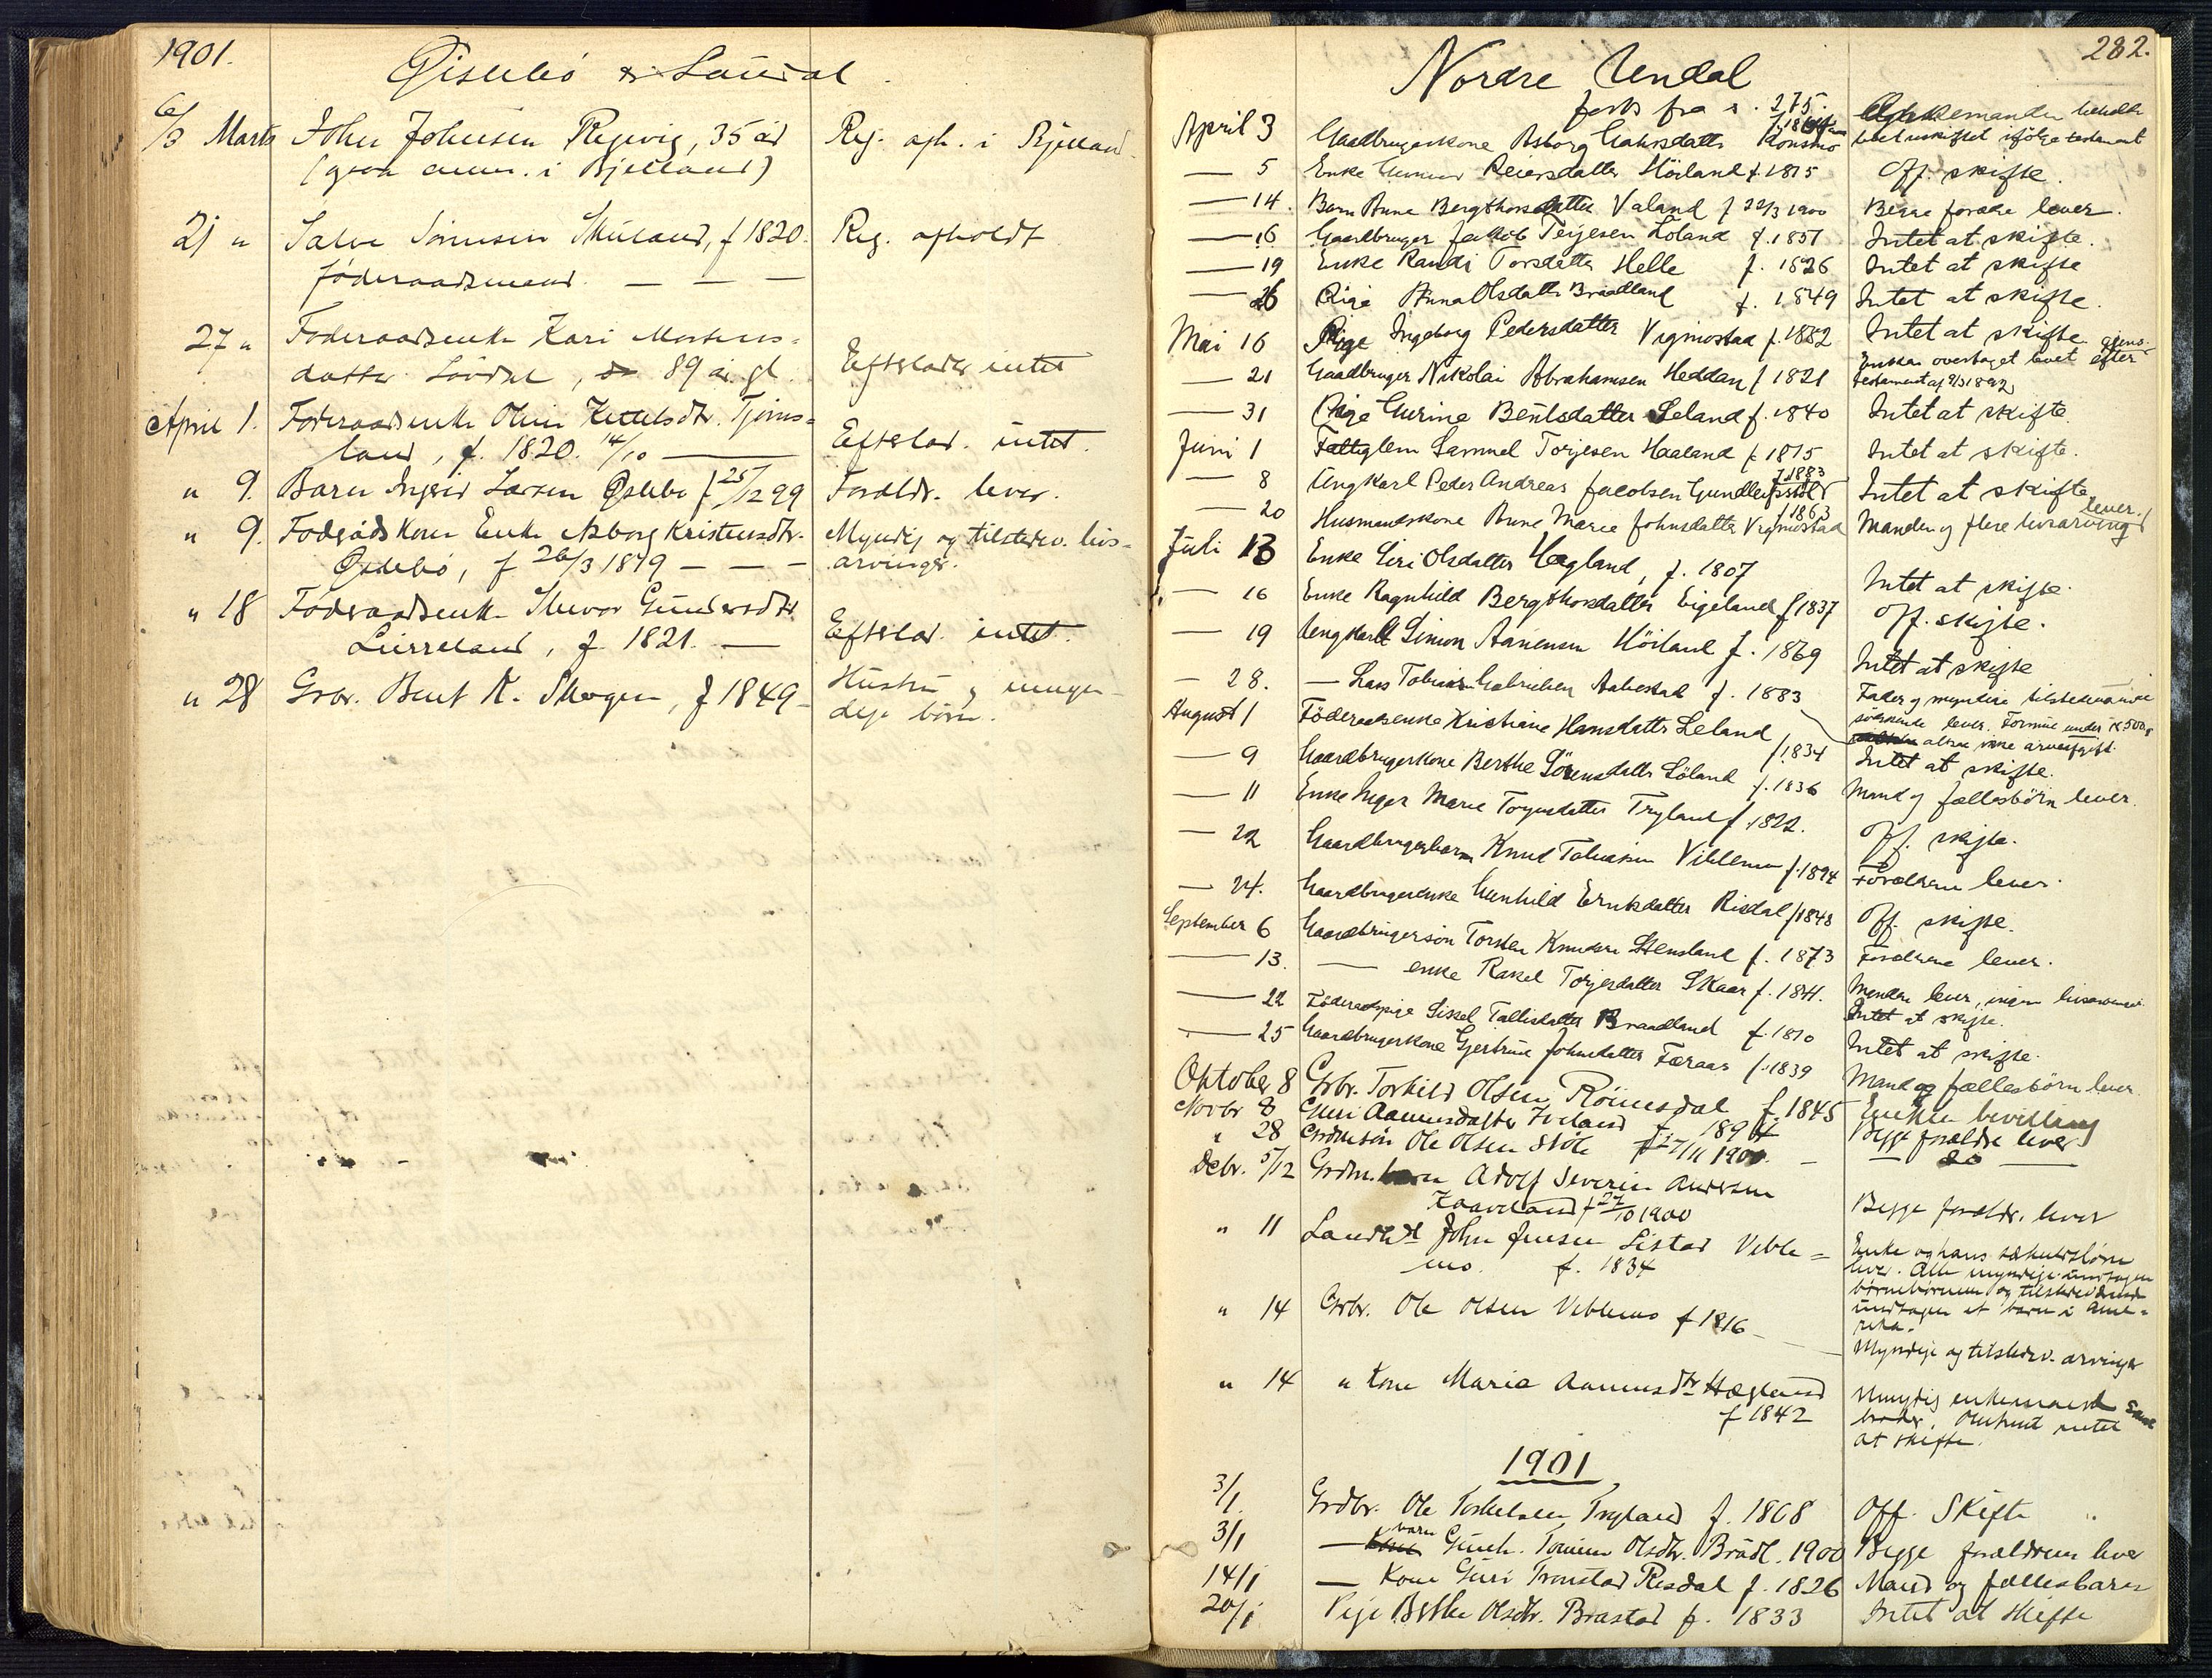 1901.
Øislebö & Laudal.
6/3 Marts John Johnsen Rejevig, 35 år Reg. afh. i Bjelland
(gren anm. i Bjelland)
21 " Salve Sörensen Skuland, f 1820. Reg. afholdt
föderaadsmand — — —
27 " Föderaadsenke Kari Mortens=
datter Lövdal, 89 år gl. Efterlader intet
April 1. Föderaadsenke Olene Kittelsdtr. Tjoms=
land, f. 1820. 14/10 — Efterlad. intet.
" 9. Barn Ingeid Larsen Øslebö f 25/12 99 Foreldr. lever.
" 9. Födrådskone Enke Asborg Kristensdtr. Myndig og tilstedev. livs=
Øislebö, f 26/3 1849 — — — arvinger.
" 18 Föderaadsenke Gundersdtr.
f. 1821. — Efterlad. intet.
" 28 Grbr. Bent K. Skogen, f 1849 — Hustru og umyn-
dige börn.
282.
Nordre Undal
forts fra s. 275.
April 3 Gaardbrugerkone Asborg Konsmo Ægtemanden beholder
boet uskiftet ifölge testament
— 5 Enke Reiersdatter Höiland f. 1815 Off. skifte.
— 14. Barn Anne Bergthorsdatter Valand f 22/3 1900 Begge forældre lever.
— 16 Gaardbruger Jakob Terjesen Löland f. 1851 Intet at skifte.
— 19 Enke Randi Torsdatter Helle f. 1826 Intet at skifte
— 26 Pige Anna Olsdatter Braadland f. 1849 Intet at skifte.
Mai 16 Pige Ingeborg Pedersdatter Vigmostad f. 1882 Intet at skifte
— 21 Gaardbruger Nikolai Abrahamsen Heddan f 1821 Enken overtaget boet efter gjens.
testament af 9/3 1892
— 31 Pige Gurine Bentsdatter Leland f. 1840 Intet at skifte.
Juni 1 Fattiglem Samuel Torjesen Haaland f. 1815 Intet at skifte.
— 8 Ungkarl Peder Andreas Jacobsen Gundleifsstöl f 1883 Intet at skifte
— 20 Husmandskone Anne Marie Johnsdatter Vigmostad f 1863 Manden og flere livsarving lever.
Juli 13 Enke Siri Olsdatter Hægland, f. 1807 Intet at skifte.
— 16 Enke Ragnhild Bergthorsdatter Eigeland f 1837 Off. skifte.
— 19 Ungkarl Simon Aanensen Höiland f. 1869 Intet at skifte
— 28. — Lars Tobias Gabrielsen f. 1883 Fader og myndige tilstedeværende
söskende lever. Formue under K 500,
altsaa ikke arveafgift.
August 1 Föderaadsenke Kristiane Hansdatter Leland f. 1834 Intet at skifte.
— 9 Gaardbrugerkone Berthe Sörensdatter Löland f. 1836 Mand og fællesbörn lever.
— 11 Enke Inger Marie Torjusdatter Tryland f. 1822. Off. skifte.
— 22 Gaardbrugerbarn Knud Tobiasen Viblemo f. 1894 Forældrene lever.
— 24. Gaardbrugerenke Gunhild Eriksdatter Risdal f 1848 Off. skifte.
September 6 Gaardbrugersön Torsten Knudsen Stensland f. 1873 Forældrene lever.
— 13. — enke Rakel Torjesdatter Skaar f. 1841. Manden lever, ingen livsarvinger.
Intet at skifte.
— 22 Föderaadspige Sissel Tallisdatter Braadland f. 1810 Intet at skifte.
— 25 Gaardbrugerkone Gjertrine Johnsdatter Færaas f. 1839 Mand og fællesbörn lever
Oktober 8 Grbr. Torkild Olsen Römesdal f. 1845 Enken bevilling
Novbr 8 Guri Aanensdatter f. 189 Begge forældre lever
" 28 Grdmsön Ole Olsen Stöle f 27/11 1900. — do —
Debr. 5/12 Grdm. barn Adolf Severin Andersen
f 27/10 1900 Begge foreldr. lever
" 11 Landhdl John Jensen Listad Vible=
mo. f. 1834 Enke og hans
lever. Alle myndige undtagen
börnebörnene og tilstedeværende
undtagen et barn i Ame=
rika.
" 14 Grbr. Ole Olsen Viblemo f 1816 — Myndige og tilstedev. arvinger
" 14 " Kone Marie Aanensdtr Hægland
f 1842 enkemand samt
broder. intet
at skifte.
1901
3/1. Grdbr. Ole Torkelsen Tryland f. 1868 Off. Skifte
3/1 — barn Gunh. Tomine Olsdtr. Brådl. 1900 Begge foreldrene lever
14/1 — Kone Guri Tronstad Risdal f. 1826 Mand og fellesbarn
20/1 Pige Berthe Olsdtr. Brastad f. 1833 Intet at skifte